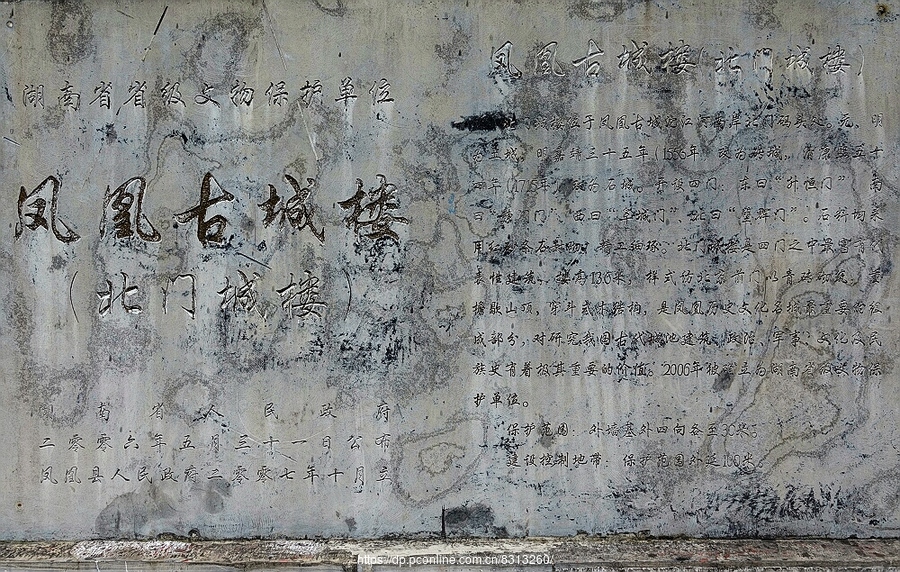 湖南省省级文物保护单位
凤凰古城楼
(北门城楼)
湖南省人民政府
二零零六年五月三十一日公布
凤凰县人民政府二零零七年十月立
凤凰古城楼(北门城楼)
城楼位于凤凰古城沱江河南岸北门码头处。元、明
土城,明嘉靖三十五年(1556年)改为砖城,清康熙五十
四年(1715年)改为石城。开设四门:东曰"升恒门",南
曰"静澜门",西曰"阜城门",北曰"壁辉门"。石料均采
用红砂条石,精工细琢。北门城楼是四门之中最富有代
表性建筑。楼高13.6米,样式仿北京前门,以青砖砌筑,重
檐歇山顶,穿斗式木结构,是凤凰历史文化名城重要的组
成部分,对研究我国古代城池建筑、政治、军事、文化及民
族史有着极其重要的价值。2006年被公布为湖南省级文物保
护单位。
保护范围:外墙基外四向各至30米。
建设控制地带:保护范围外延100米。
https://dp.pconline.com.cn/8313260/